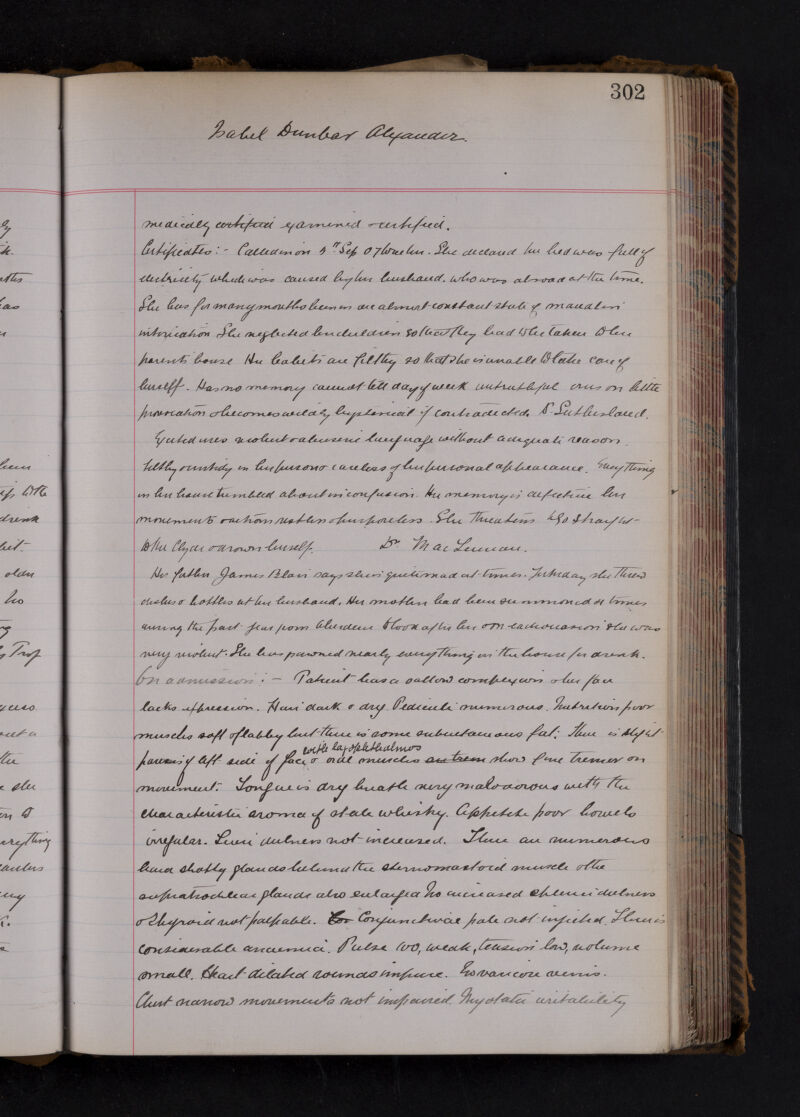 302
Isabel Dunbar Alexander.
medically certified examined & certified.
Certificates:- Called on 5th Sep 07 She declared her bed was full of
electricity which was caused by her husband. who was abroad at the time.
She has for many months been in an almost constant state of maudlin
intoxication She neglected her children so that they had to be taken to her
parents house Her habits are filthy so that she is unable to take care of
herself. Has no memory cannot tell day of week untruthful cries on little
provocation & becomes wildly hysterical if contradicted. Dr Sutherland.
Excited uses violent & abusive language without adequate reason.
filthy & untidy in her person & careless of her personal appearance. Everything
in her house tumbled about in confusion. Her memory is defective her
movements & actions restless & purposeless. She threatens to go straight
to the Clyde & drown herself. Dr MacLennan.
Her father James Blair says she is quite mad at times. Yesterday she threw
dishes & bottles at her husband. Her mother had been summoned 4 times
during the past year from Aberdeen to look after her & on each occasion she was
very violent. She has pawned nearly everything in the house for drink.
On admission:- Patient has a sallow complexion & her face
lacks expression. Hair dark & dry. Pediculi numerous. Nutrition poor
muscles soft & flabby but there is some subcutaneous fat. There is slight
paresis of left side of face with lagophthalmos & oral muscles show fine tremor on
movement. Tongue is dry breath very malodorous with the
characteristic aroma of stale whisky. Appetite poor bowels
irregular. Liver dulness not increased. There are numerous
hard shotty glands behind the sternomastoid muscle & the
supratrochlear glands also enlarged No increased splenic dulness
& thyroid not palpable. Conjunctivae pale not injected. There is
considerable anaemia. Pulse 100, weak, tension low, volume
small. Heart dilated sounds impure. No varicose veins.
Chest narrow movements not impaired. Myotatic irritability